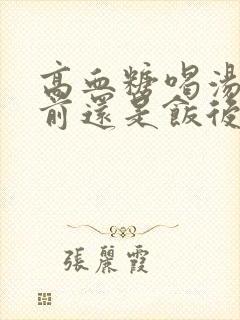 高血糖喝湯
前還是飯後
張麗霞